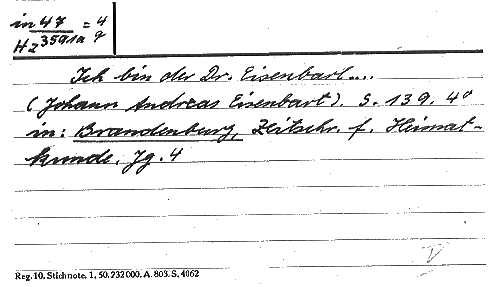 in 47 = 4
Hz 3591a 9
Ich bin der Dr. Eisenbart....
(Johann Andreas Eisenbart). S. 139. 4°
in: Brandenburg, Zeitschr. f. Heimat-
kunde. Jg. 4
Reg. 10. Stichnote. 1, 50. 232 000. A. 803. S. 4062